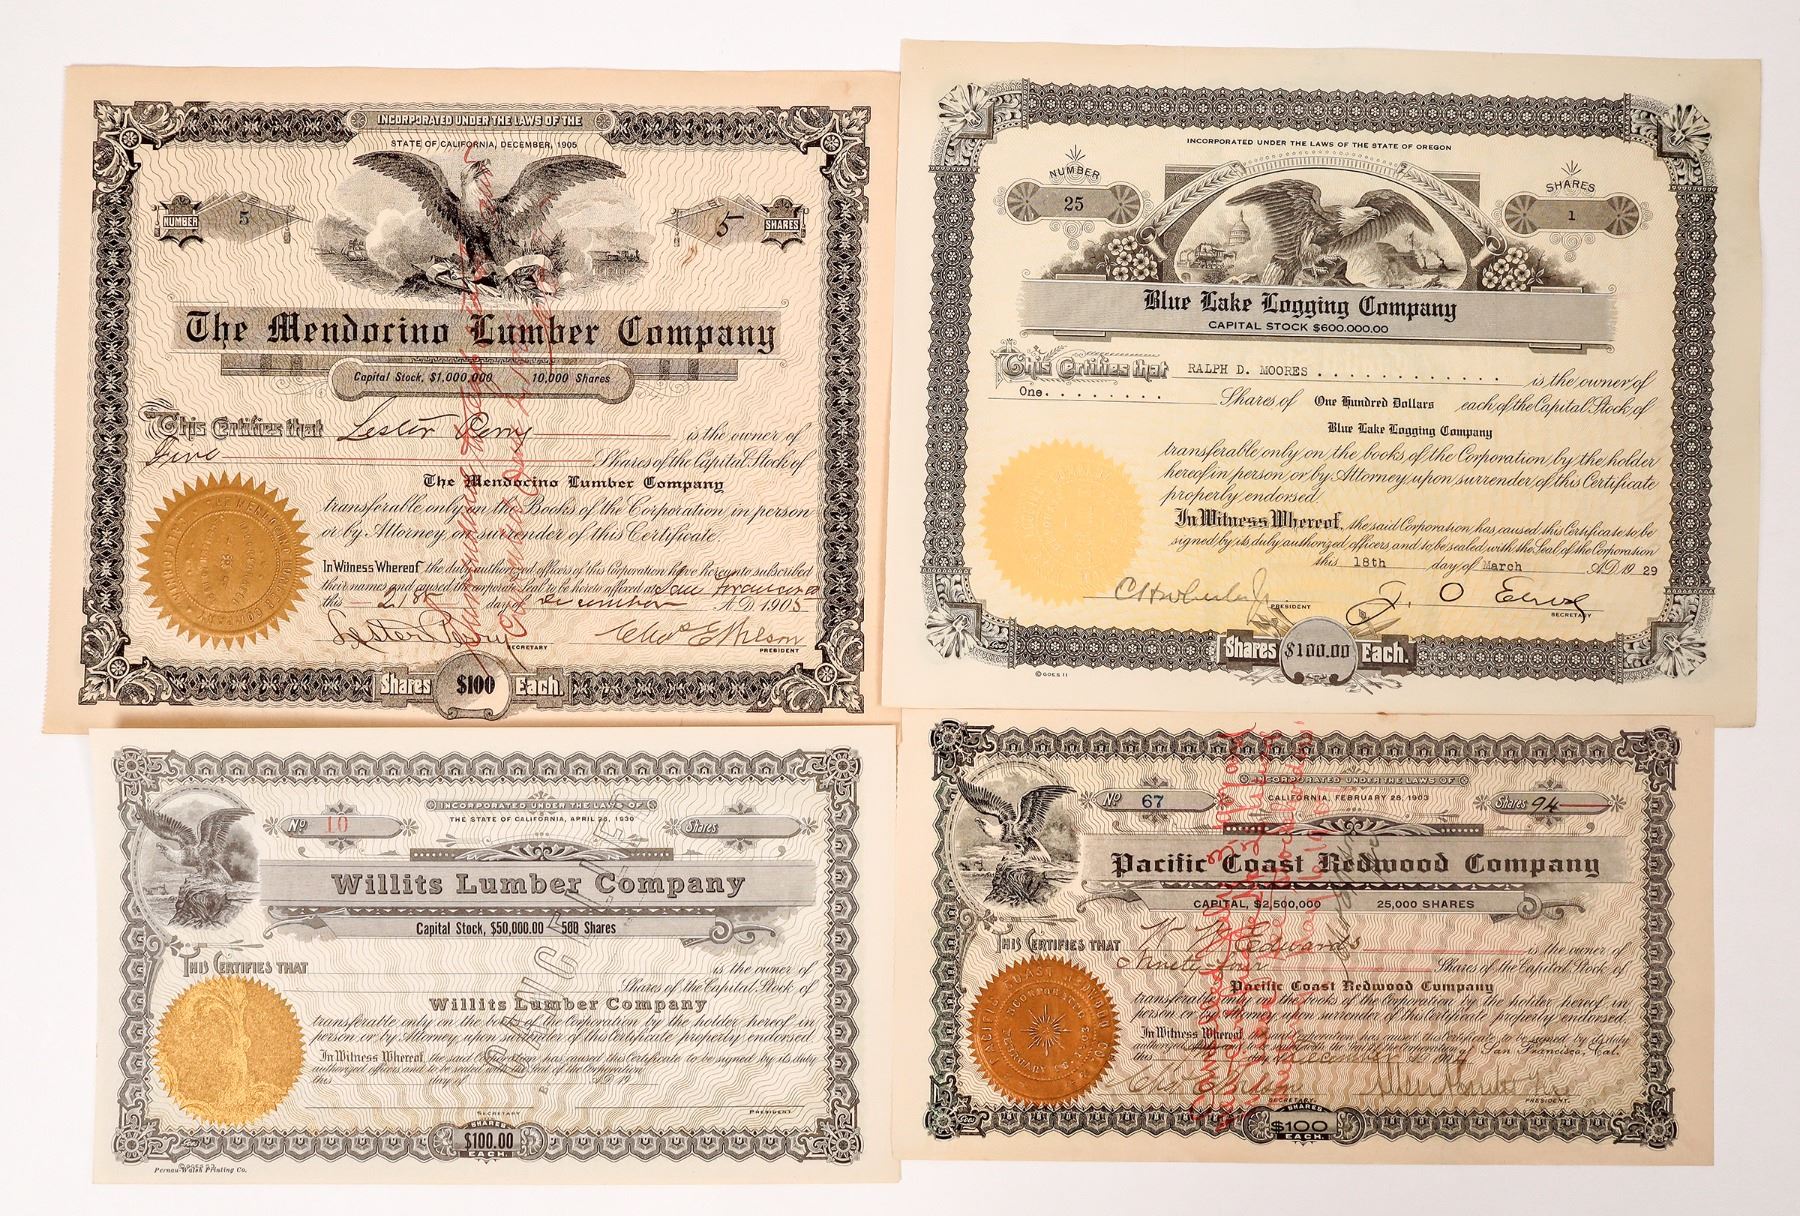 INCORPORATED UNDER THE LAWS OF THE
STATE OF CALIFORNIA, DECEMBER, 1905
NUMBER 5
5 SHARES
The Mendocino Lumber Company
Capital Stock, $1,000,000 10,000 Shares
This Certifies that Lester Perry is the owner of
Five Shares of the Capital Stock of
The Mendocino Lumber Company
transferable only on the Books of the Corporation in person
or by Attorney on surrender of this Certificate.
In Witness Whereof the duly authorized officers of this Corporation have hereunto subscribed
their names and caused the corporate Seal to be hereto affixed at San Francisco
this 21st day of December A.D. 1905
Lester Perry SECRETARY
Chas E Wilson PRESIDENT
Shares $100 Each.
INCORPORATED UNDER THE LAWS OF THE STATE OF OREGON
NUMBER
25
SHARES
1
Blue Lake Logging Company
CAPITAL STOCK $600.000.00
This Certifies that RALPH D. MOORES is the owner of
One Shares of One Hundred Dollars each of the Capital Stock of
Blue Lake Logging Company
transferable only on the books of the Corporation by the holder
hereof in person or by Attorney upon surrender of this Certificate
properly endorsed.
In Witness Whereof, the said Corporation has caused this Certificate to be
signed by its duly authorized officers and to be sealed with the Seal of the Corporation
this 18th day of March A.D. 19 29
PRESIDENT
SECRETARY
Shares $100.00 Each.
© GOES 11
INCORPORATED UNDER THE LAWS OF
THE STATE OF CALIFORNIA, APRIL 1930
No 10
Shares
Willits Lumber Company
Capital Stock, $50,000.00 500 Shares
THIS CERTIFIES THAT is the owner of
Shares of the Capital Stock of
Willits Lumber Company
transferable only on the books of the Corporation by the holder hereof in
person or by Attorney upon surrender of this Certificate properly endorsed.
In Witness Whereof, the said Corporation has caused this Certificate to be signed by its duly
authorized officers and to be sealed with the Seal of the Corporation
this day of A.D. 19
SECRETARY
PRESIDENT
SHARES
$100.00
EACH.
CANCELLED
© GOES
Pernau-Walsh Printing Co.
INCORPORATED UNDER THE LAWS OF
CALIFORNIA, FEBRUARY 28, 1903
No 67
Shares 94
Pacific Coast Redwood Company
CAPITAL, $2,500,000 25,000 SHARES
THIS CERTIFIES THAT W Edwards is the owner of
Ninety-four Shares of the Capital Stock of
Pacific Coast Redwood Company
transferable only on the books of the Corporation by the holder hereof in
person or by Attorney upon surrender of this Certificate properly endorsed.
In Witness Whereof, the said Corporation has caused this Certificate to be signed by its duly
authorized officers and to be sealed with the Seal of the Corporation
this day of December San Francisco, Cal.
Chas E Wilson
SECRETARY.
PRESIDENT.
SHARES
$100
EACH.